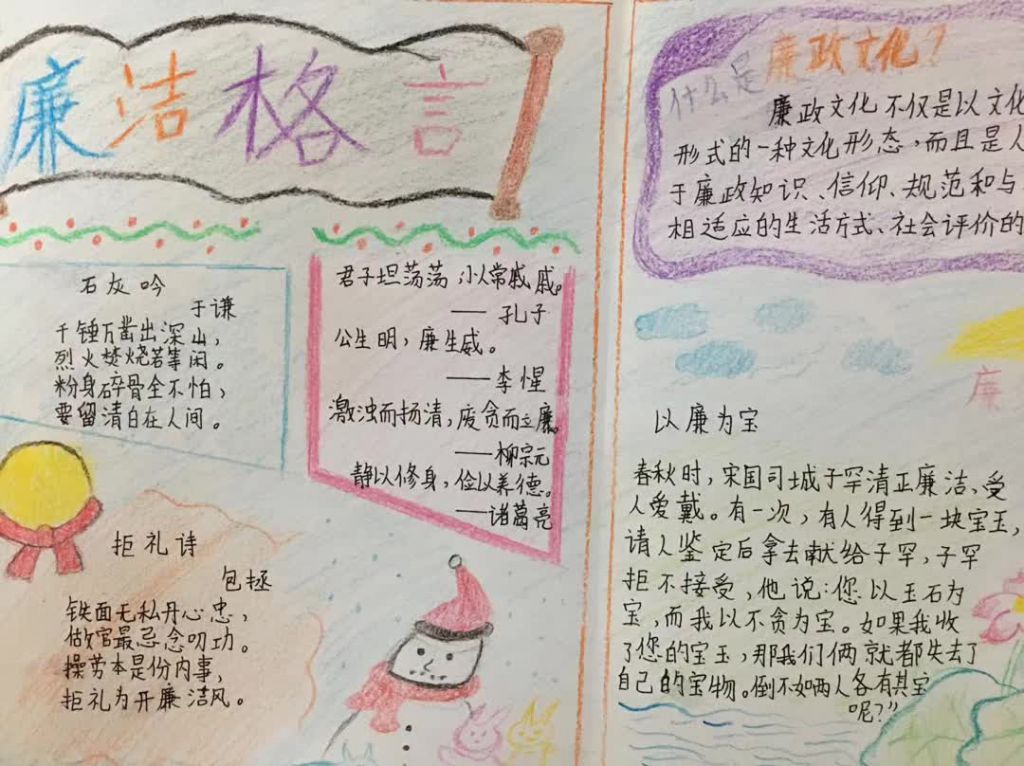 廉洁格言
石灰吟
于谦
千锤万凿出深山，
烈火焚烧若等闲。
粉身碎骨全不怕，
要留清白在人间。
君子坦荡荡，小人常戚戚。
—— 孔子
公生明，廉生威。
——李惺
激浊而扬清，废贪而立廉。
——柳宗元
静以修身，俭以养德。
——诸葛亮
拒礼诗
包拯
铁面无私丹心忠，
做官最忌念叨功。
操劳本是份内事，
拒礼为开廉洁风。
什么是廉政文化？
廉政文化不仅是以文化
形式的一种文化形态，而且是人
于廉政知识、信仰、规范和与
相适应的生活方式、社会评价的
廉
以廉为宝
春秋时，宋国司城子罕清正廉洁、受
人爱戴。有一次，有人得到一块宝玉，
请人鉴定后拿去献给子罕，子罕
拒不接受，他说：您以玉石为
宝，而我以不贪为宝。如果我收
了您的宝玉，那我们俩就都失去了
自己的宝物。倒不如两人各有其宝
呢？”